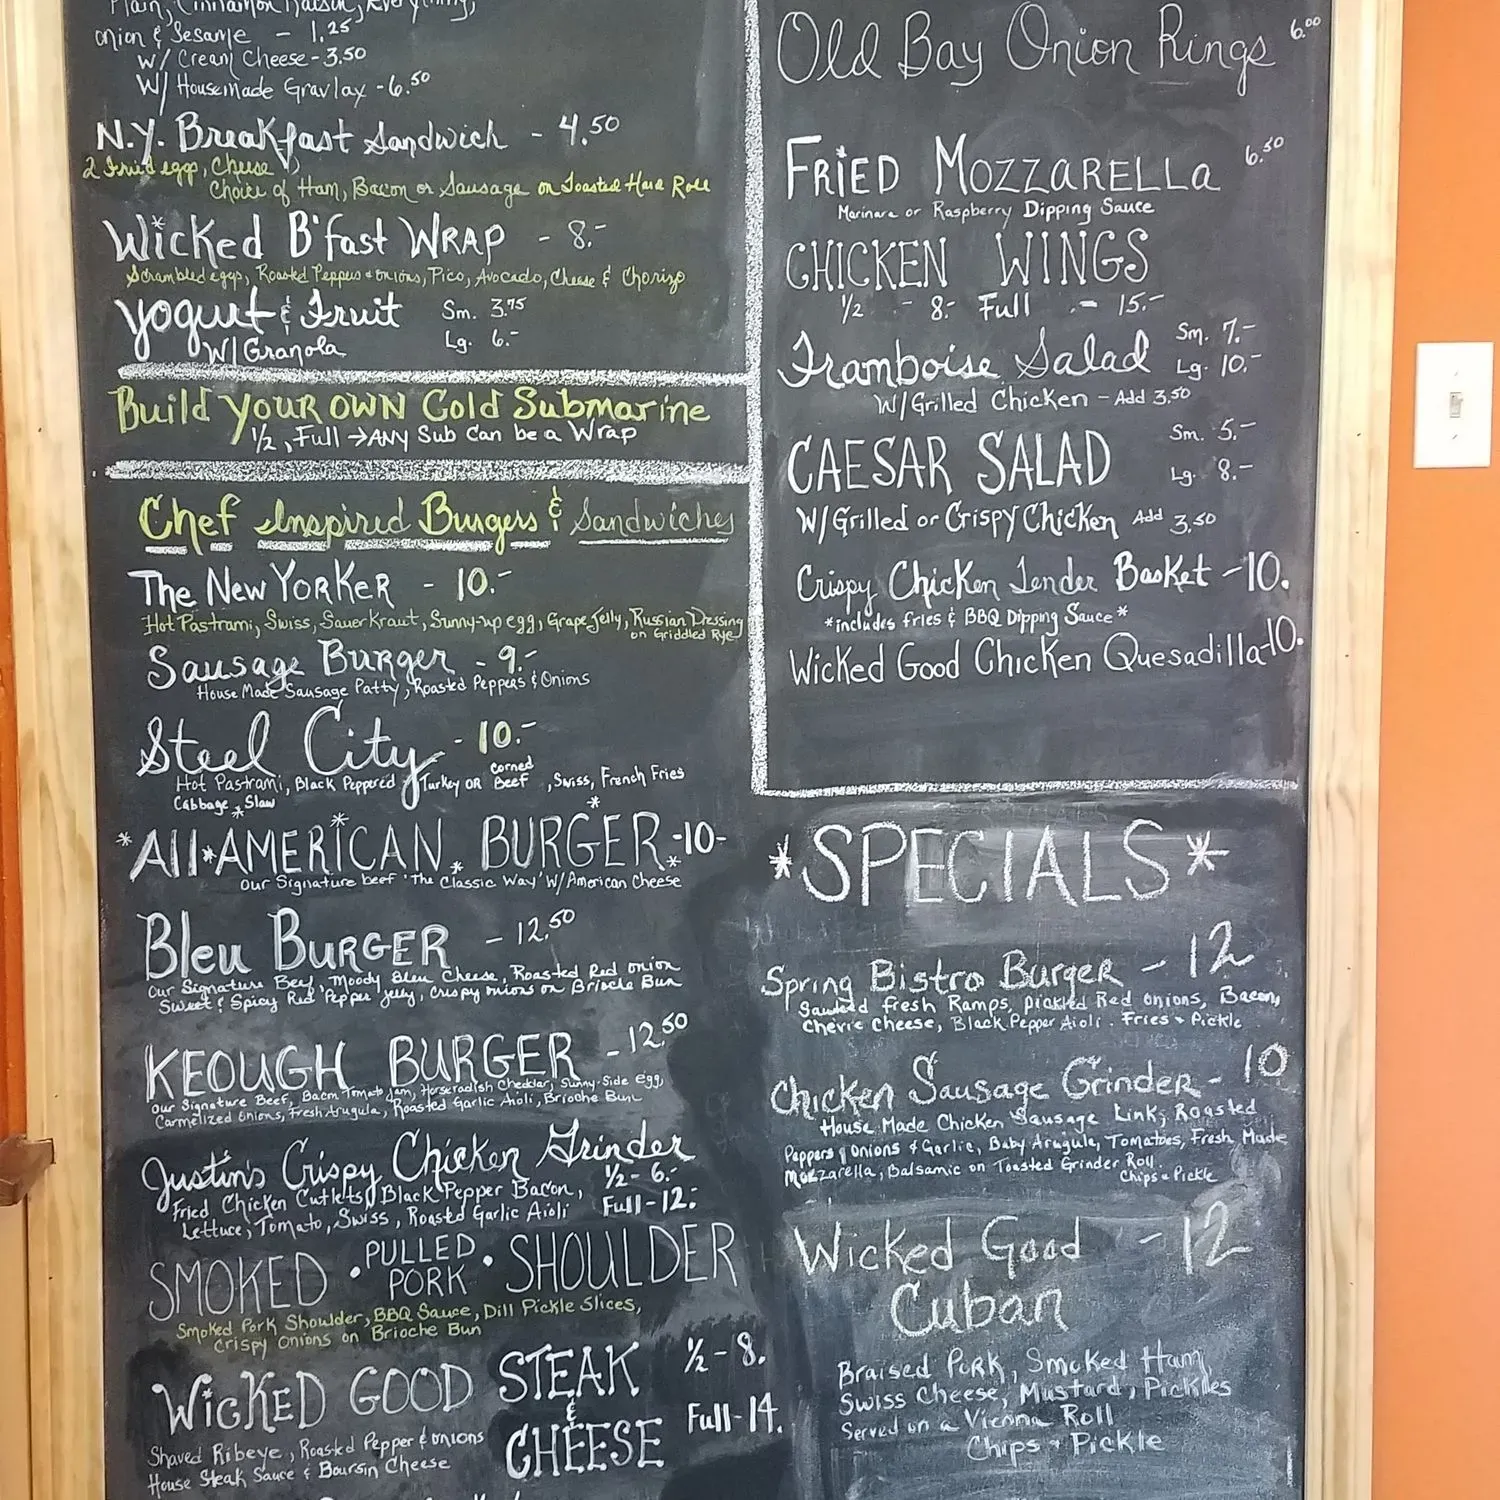 Plain, Cinnamon Raisin, Everything,
Onion & Sesame - 1.25
W/ Cream Cheese - 3.50
W/ Housemade Gravlax - 6.50
N.Y. Breakfast Sandwich - 4.50
2 Fried eggs, Cheese
Choice of Ham, Bacon or Sausage on Toasted Hard Roll
Wicked B'fast WRAP - 8.-
Scrambled eggs, Roasted Peppers + onions, Pico, Avocado, Cheese & Chorizo
Yogurt & Fruit Sm. 3.75
W/ Granola Lg. 6.-
Build YOUR OWN Cold Submarine
1/2, Full → ANY Sub Can be a Wrap
Chef Inspired Burgers & Sandwiches
The New YORKER - 10.-
Hot Pastrami, Swiss, Sauerkraut, Sunny-up egg, Grape Jelly, Russian Dressing
on Griddled Rye
Sausage Burger - 9.-
House Made Sausage Patty, Roasted Peppers & Onions
Steel City - 10.-
Hot Pastrami, Black Peppered Turkey OR Corned Beef, Swiss, French Fries
Cabbage Slaw
*All*AMERICAN BURGER -10-
Our Signature beef 'The Classic Way' W/ American Cheese
Bleu BURGER - 12.50
Our Signature Beef, Moody Bleu Cheese, Roasted Red Onion
Sweet & Spicy Red Pepper Jelly, Crispy onions on Brioche Bun
KEOUGH BURGER - 12.50
Our Signature Beef, Bacon Tomato Jam, Horseradish Cheddar, Sunny-Side egg,
Carmelized Onions, Fresh Arugula, Roasted Garlic Aioli, Brioche Bun
Justin's Crispy Chicken Grinder
Fried Chicken Cutlets, Black Pepper Bacon, 1/2 - 6.-
Lettuce, Tomato, Swiss, Roasted Garlic Aioli Full - 12.-
SMOKED • PULLED PORK • SHOULDER
Smoked Pork Shoulder, BBQ Sauce, Dill Pickle Slices,
Crispy Onions on Brioche Bun
WICKED GOOD STEAK & CHEESE 1/2 - 8.
Full - 14.
Shaved Ribeye, Roasted Pepper & onions
House Steak Sauce & Boursin Cheese
Old Bay Onion Rings 6.00
FRIED MOZZARELLA 6.50
Marinara or Raspberry Dipping Sauce
CHICKEN WINGS
1/2 - 8.- Full - 15.-
Framboise Salad Sm. 7.-
Lg. 10.-
W/ Grilled Chicken - Add 3.50
CAESAR SALAD Sm. 5.-
Lg. 8.-
W/ Grilled or Crispy Chicken Add 3.50
Crispy Chicken Tender Basket - 10.
*includes fries & BBQ Dipping Sauce*
Wicked Good Chicken Quesadilla - 10.
*SPECIALS*
Spring Bistro Burger - 12
Sauteed fresh Ramps, pickled Red onions, Bacon,
Chevre Cheese, Black Pepper Aioli. Fries + Pickle
Chicken Sausage Grinder - 10
House Made Chicken Sausage Link, Roasted
Peppers & Onions & Garlic, Baby Arugula, Tomatoes, Fresh Made
Mozzarella, Balsamic on Toasted Grinder Roll.
Chips + Pickle
Wicked Good - 12
Cuban
Braised Pork, Smoked Ham,
Swiss Cheese, Mustard, Pickles
Served on a Vienna Roll
Chips + Pickle